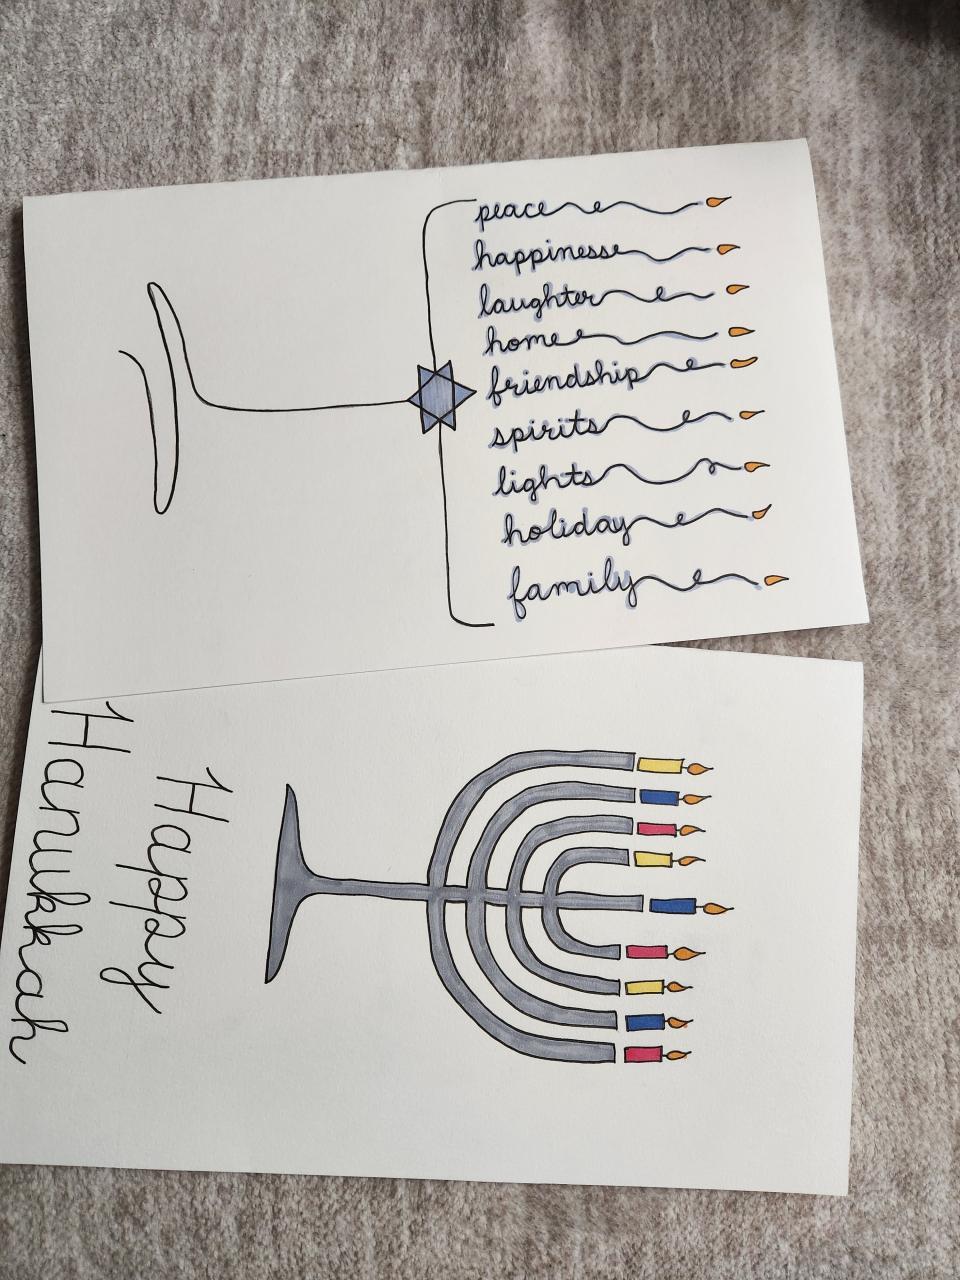 peace
happinesse
laughter
home
friendship
spirits
lights
holiday
family
Happy
Hanukkah